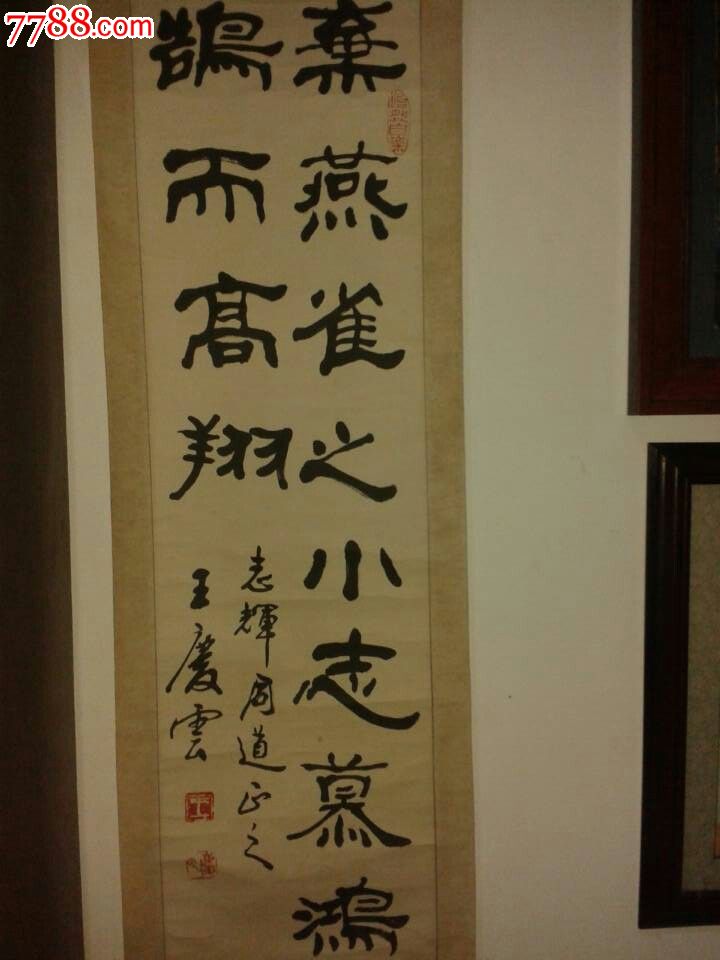 7788.com
棄燕雀之小志慕鴻
鵠而高翔
志輝同道正之
王慶雲